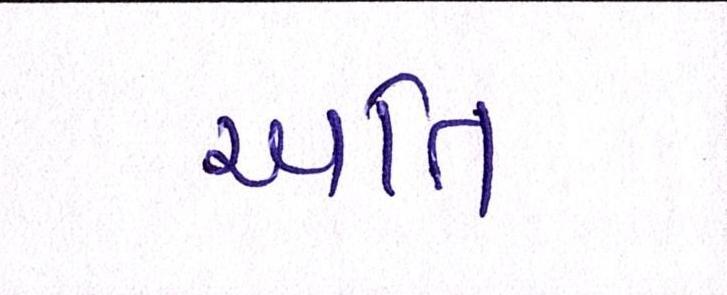 અતિ